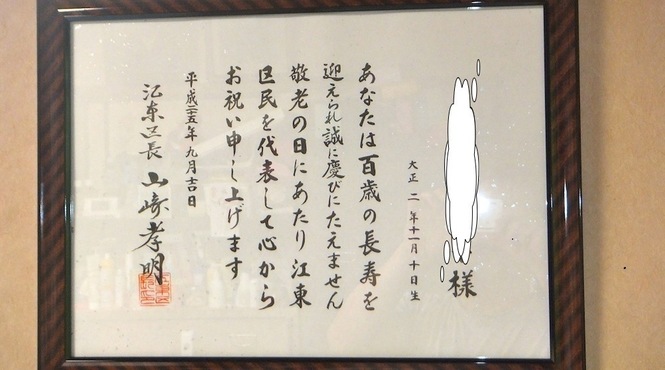 様
大正二年十一月十日生
あなたは百歳の長寿を
迎えられ誠に慶びにたえません
敬老の日にあたり江東
区民を代表して心から
お祝い申し上げます
平成二十五年九月吉日
江東区長 山﨑孝明